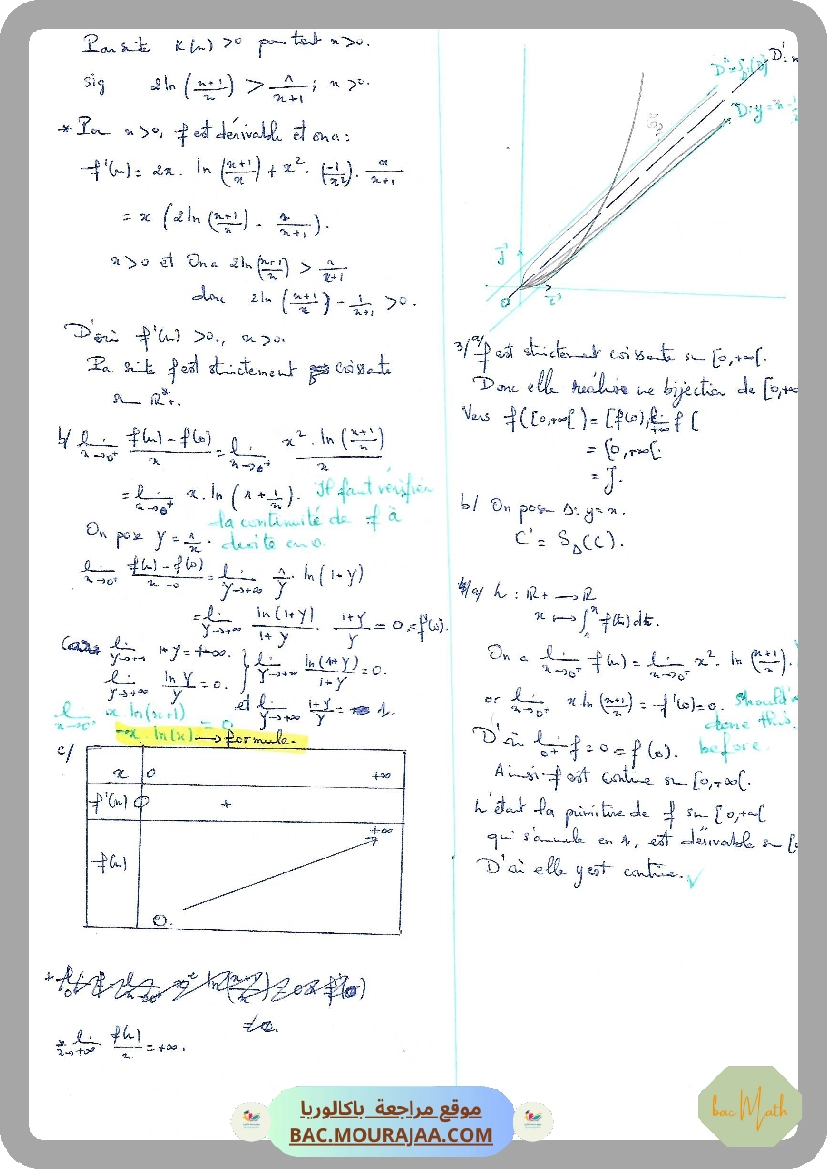 Par suite K(x) > 0 pour tout x > 0.
sig 2ln((x+1)/x) > 1/(x+1) ; x > 0.
* Pour x > 0, f est dérivable et on a :
f'(x) = 2x. ln((x+1)/x) + x². (-1/x²). x/(x+1)
= x (2ln((x+1)/x) - 1/(x+1)).
x > 0 et On a 2ln((x+1)/x) > 1/(x+1)
donc 2ln((x+1)/x) - 1/(x+1) > 0.
D'où f'(x) > 0., x > 0.
Par suite f est strictement croissante
sur R*+.
b/ lim x→0+ (f(x) - f(0))/x = lim x→0+ (x². ln((x+1)/x))/x
= lim x→0+ x. ln(1 + 1/x). Il faut vérifier
la continuité de f à
On pose y = 1/x. droite en 0.
lim x→0+ (f(x) - f(0))/(x-0) = lim y→+∞ 1/y. ln(1+y)
= lim y→+∞ ln(1+y)/(1+y). (1+y)/y = 0 = f'(0).
Car lim y→+∞ 1+y = +∞. } lim y→+∞ ln(1+y)/(1+y) = 0.
lim y→+∞ ln y/y = 0.
et lim y→+∞ (1+y)/y = 1.
lim x→0+ x ln(x+1) = 0
-x. ln(x) → formule.
c/
x 0 +∞
f'(x) 0 +
f(x) 0. +∞
* lim x→+∞ f(x)/x = +∞.
D'
D: y = x - 1/2
j
O
i
3/ a/ f est strictement croissante sur [0,+∞[.
Donc elle réalise une bijection de [0,+∞
Vers f([0,+∞[) = [f(0), lim +∞ f [
= [0,+∞[.
= J.
b/ On pose Δ: y = x.
C' = SΔ(C).
4/ a/ h : R+ → R
x ↦ ∫ f(t) dt.
On a lim x→0+ f(x) = lim x→0+ x². ln((x+1)/x).
or lim x→0+ x ln((x+1)/x) = f'(0) = 0. should've
done this
before.
D'où lim 0+ f = 0 = f(0).
Ainsi f est continue sur [0,+∞[.
h étant la primitive de f sur [0,+∞[
qui s'annule en 1, est dérivable sur [0
D'où elle y est continue. ✓
موقع مراجعة باكالوريا
BAC.MOURAJAA.COM
bacMath